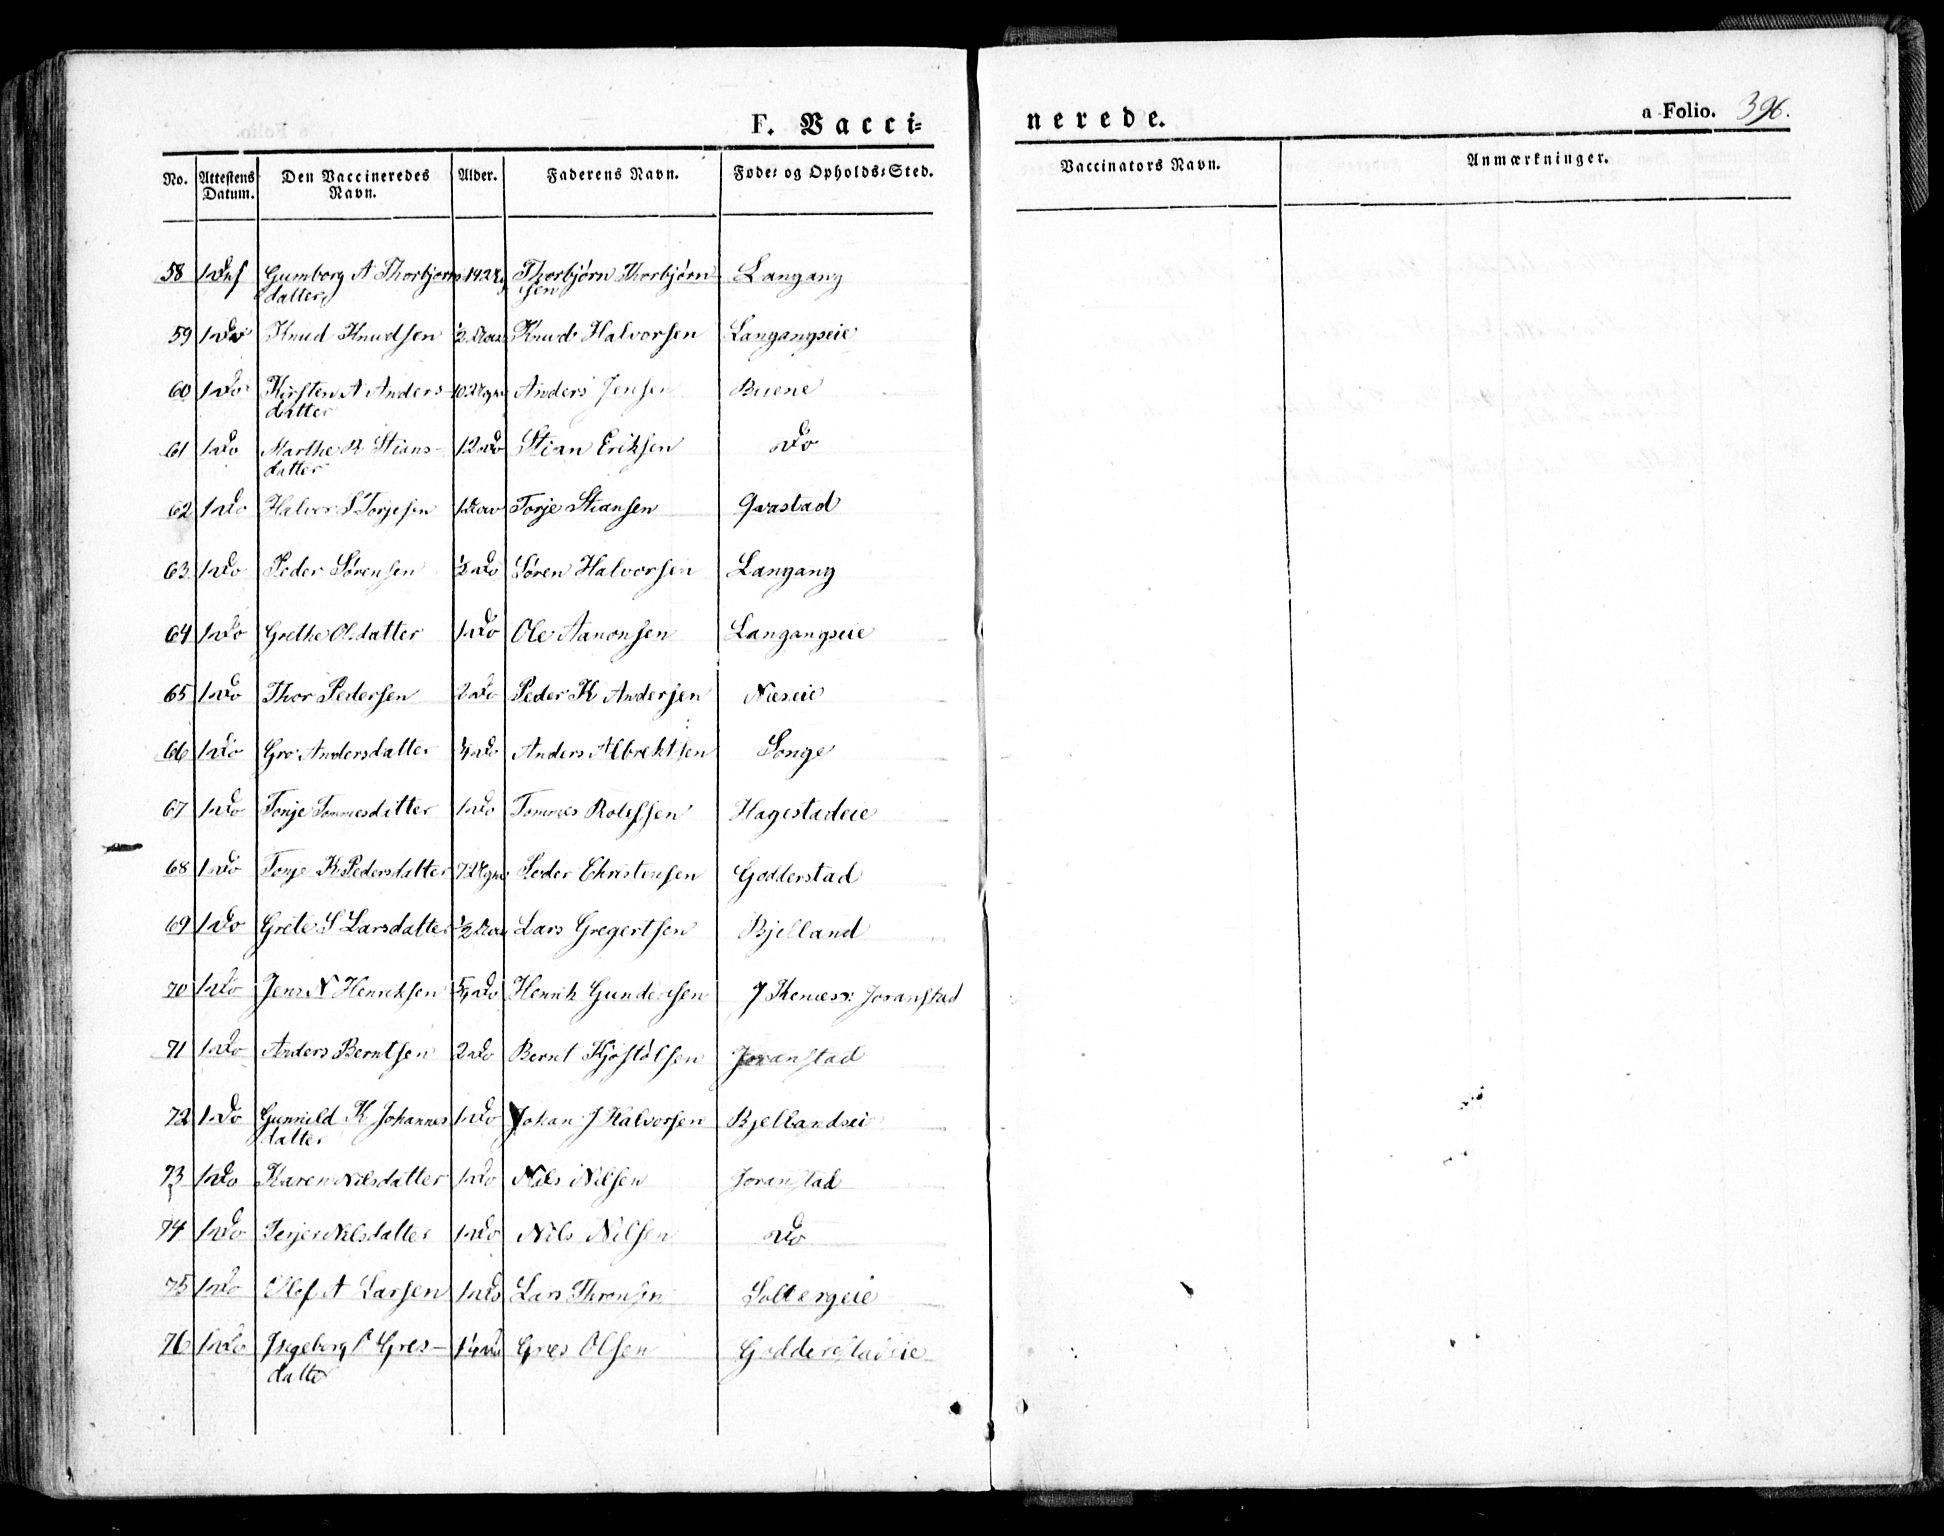 F. Vacci=
nerede.
a Folio. 396.
No. Attestens Datum. Den Vaccineredes Navn. Alder. Faderens Navn. Føde= og Opholds=Sted. Vaccinators Navn. Anmærkninger.
58 Gumborg A Thorbjørns Thorbjørn Thorbjørn Langang
datter sen
59 1 Do Knud Knudsen ½ Knud Halvorsen Langangseie
60 1 Do Kirsten A Anders- Anders Jensen Buene
datter
61 1 Do Marthe R Stians- 12 Do Stian Eriksen Do
datter
62 1 Do Halvor S Torjesen Torje Stiansen Qvastad
63 1 Do Peder Sørensen ½ Do Søren Halvorsen Langang
64 1 Do Grethe Olsdatter 1 Do Ole Aanonsen Langangseie
65 1 Do Thor Pedersen 2 Do Peder K Andersen Næseie
66 1 Do Gro Andersdatter ¼ Do Anders Albrektsen Songe
67 1 Do Tonje Tommesdatter 1 Do Tommes Rolefsen Hagestadeie
68 1 Do Tonje K Pedersdatter Peder Christensen Godderstad
69 1 Do Grete S Larsdatter ½ Lars Gregertsen Bjelland
70 1 Do Jens N Henriksen Do Henrik Gundersen Joranstad
71 1 Do Anders Berntsen 2 Do Bernt Kjøstølsen Joranstad
72 1 Do Gunnild K Johannes 1 Do Johan J Halvorsen Bjellandseie
datter
73 1 Do Karen Nilsdatter 1 Do Nils Nilsen Joranstad
74 1 Do Terjer Nilsdatter 1 Do Nils Nilsen Do
75 1 Do Olef A Larsen 1 Do Lars Thronsen Soltergeie
76 1 Do Ingeborg O Gres- Gres Olsen Godderstadeie
datter